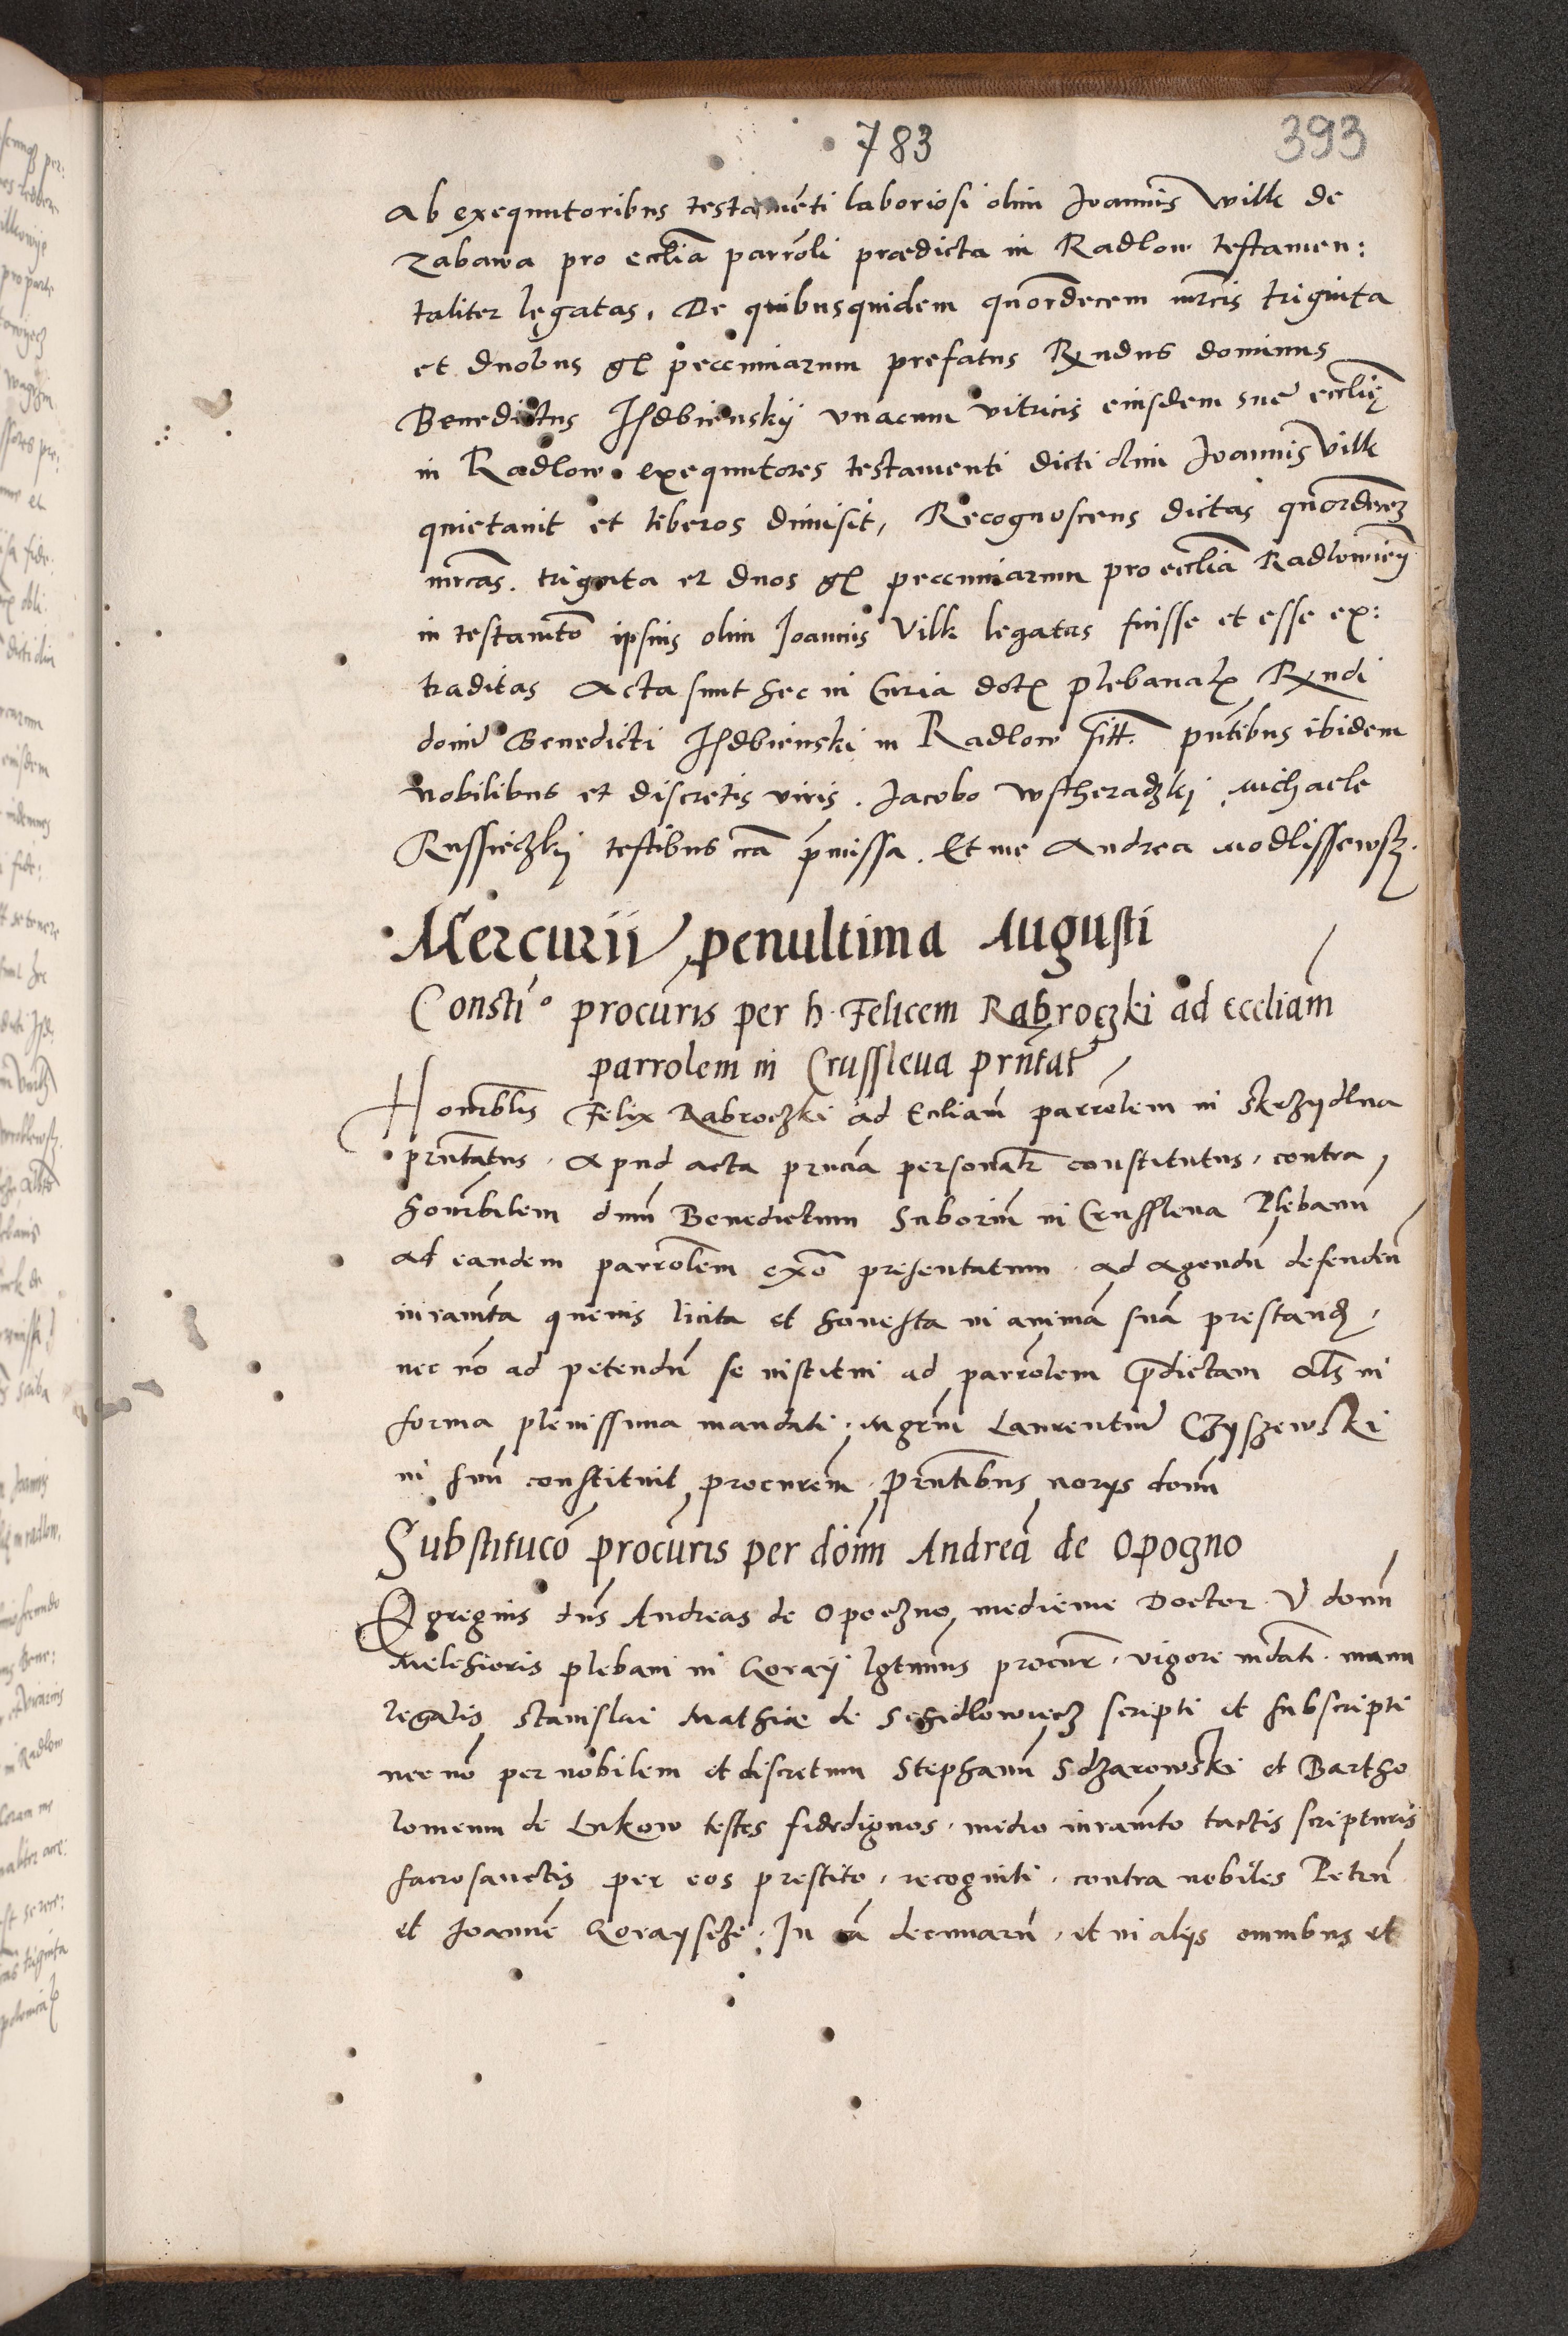 783
393
ab exequutoribus testamēti laboriosi olim Joannis Wilk de
Zabawa pro ecclīa parrōli prædicta in Radlow testamen:
taliter legatas. De quibusquidem quordecem mrcis triginta
et duobus gℓ peccuniarum prefatus Rndus dominus
Benedictus Isdbienskij vnacum vitricis eiusdem sue ecclię
in Radlow exequutores testamenti dicti olim Joannis Vilk
quietauit et liberos dimisit, Recognoscens dictas quordecez
mrcas. triginta et duos gℓ peccuniarum pro ecclīa Radlowień
in testamto ipsius olim Joannis Vilk legatas fuisse et esse ex:
traditas Acta sunt hec in Curia dotꝭ plebanalꝭ Rndi
domī Benedicti Isdbienski in Radlow sitt. pntibus ibidem
nobilibus et discretis viris. Jacobo Wstheradzkj Michaele
Russieczkij testibus cīca pmissa. Et me Andrea Modlissewsz.
Mercurii penultima Augusti
Constiº procuris per h. Felicem Rabroczki ad eccliam
parrolem in Crussleua prntat
Honorblis Felix Rabroczki ad Eccliam parrolem in Skrzydlna
prntatus. Apud acta prncia personalr constitutus, contra
honrbilem dnm Benedictum Suborim in Crusslena Plebanū
ad eandem parrolem exō presentatum. ad agendū defendeñ
iuramta queuis licita et honesta in animā suā prestandꝭ,
nec nō ad petendū se institui ad parrolem pdictam als in
forma plenissima mandati. Mgrm Laurentiū Czyszewski
in suū constituit procurem. Prntibus norijs domū
Substitucō procuris per dōim Andreā de Opogno
Egregius dns Andreas de Opoczno, medicine Doctor. V. domī
Melchioris plebani in Goraij lgtimus procurr. vigore mdati. manu
legalis Stanislai Mathiæ de Schidlowiecz scripti et subscripti
nec nō per nobilem et discretum Stephanū Sdzarowski et Bartho
lomeum de Lukow testes fidedignos. medio iuramto tactis scripturis
sacrosanctis per eos prestito, recogniti. contra nobiles Petrū
et Joannē Gorayscze. In cā decimarū, et in alijs omnibus et